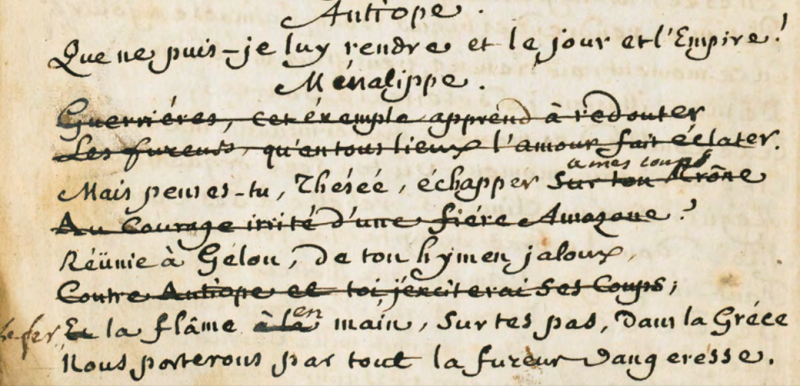 Antiope.
Que ne puis-je luy rendre et le jour et l'Empire!
Ménalippe.
Guerriéres, cet éxemple apprend à redouter
Les fureurs, qu'en tous lieux l'amour fait éclater.
à mes coups
Mais penses-tu, Thésée, échapper sur ton Trône
Au Courage irrité d'une fiére Amazone?
Réünie à Gélon, de ton hymen jaloux,
Contre Antiope et toi j'exciterai ses Coups;
le fer, Et la flâme à la en main, sur tes pas, dans la Gréce
Nous porterons par tout la fureur vangeresse.